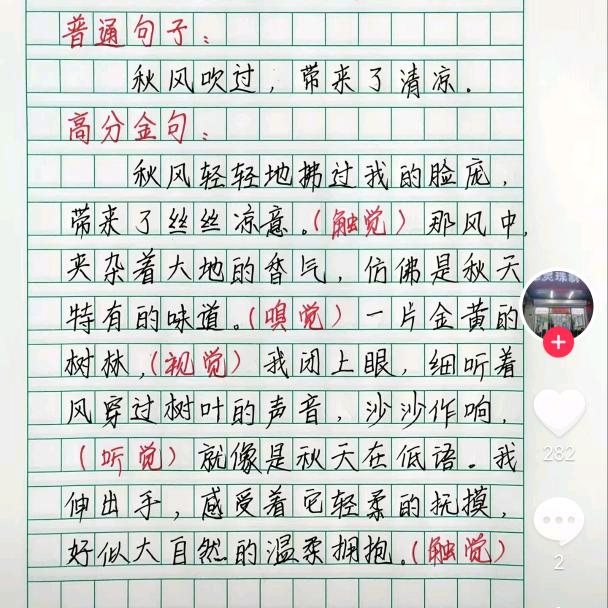 普通句子：
秋风吹过，带来了清凉。
高分金句：
秋风轻轻地拂过我的脸庞，
带来了丝丝凉意。（触觉）那风中，
夹杂着大地的香气，仿佛是秋天
特有的味道。（嗅觉）一片金黄的
树林，（视觉）我闭上眼，细听着
风穿过树叶的声音，沙沙作响，
（听觉）就像是秋天在低语。我
伸出手，感受着它轻柔的抚摸，
好似大自然的温柔拥抱。（触觉）
282
2